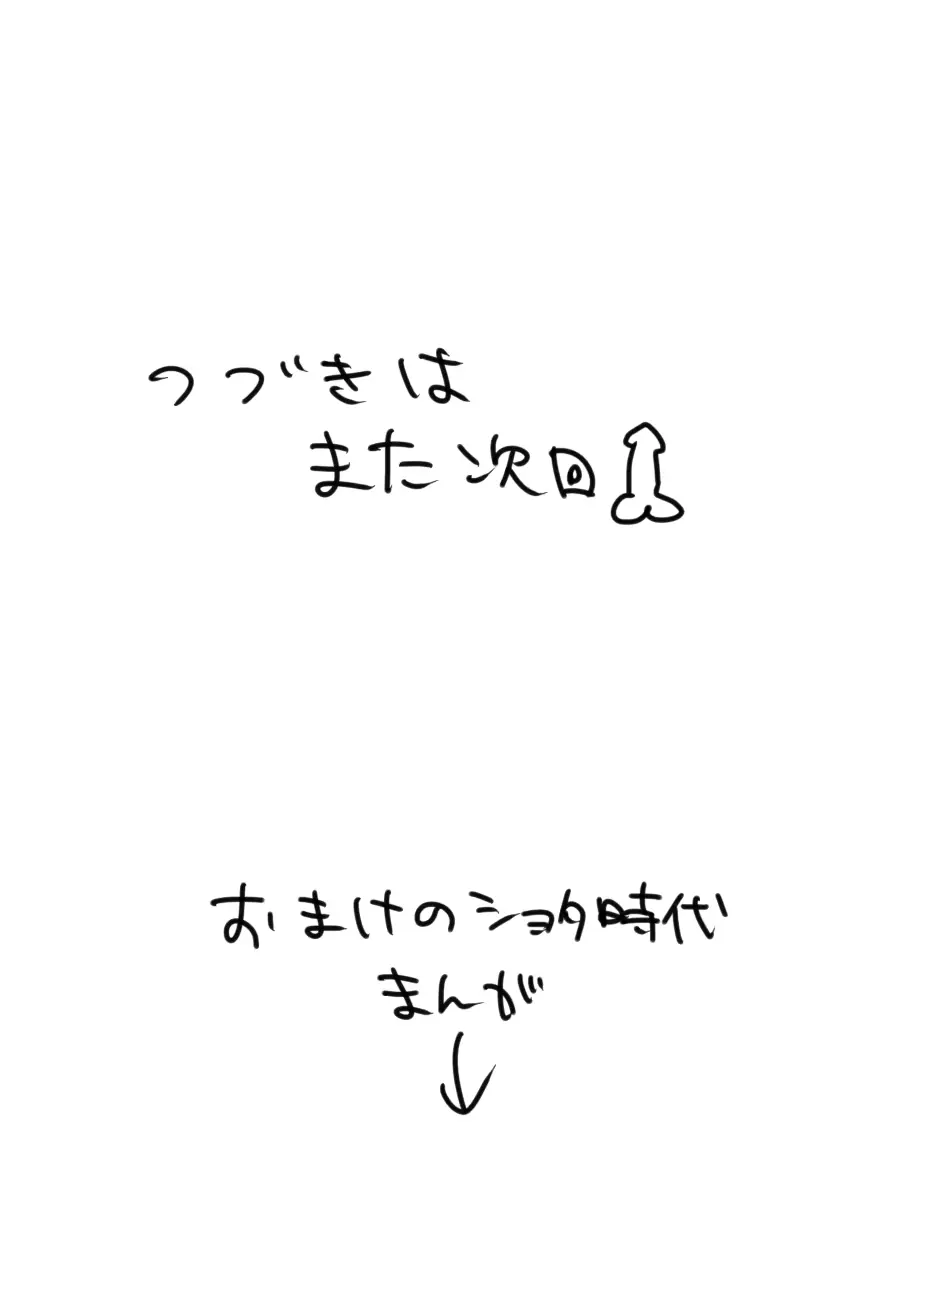 つづきは
また次回
おまけのショタ時代
まんが
↓